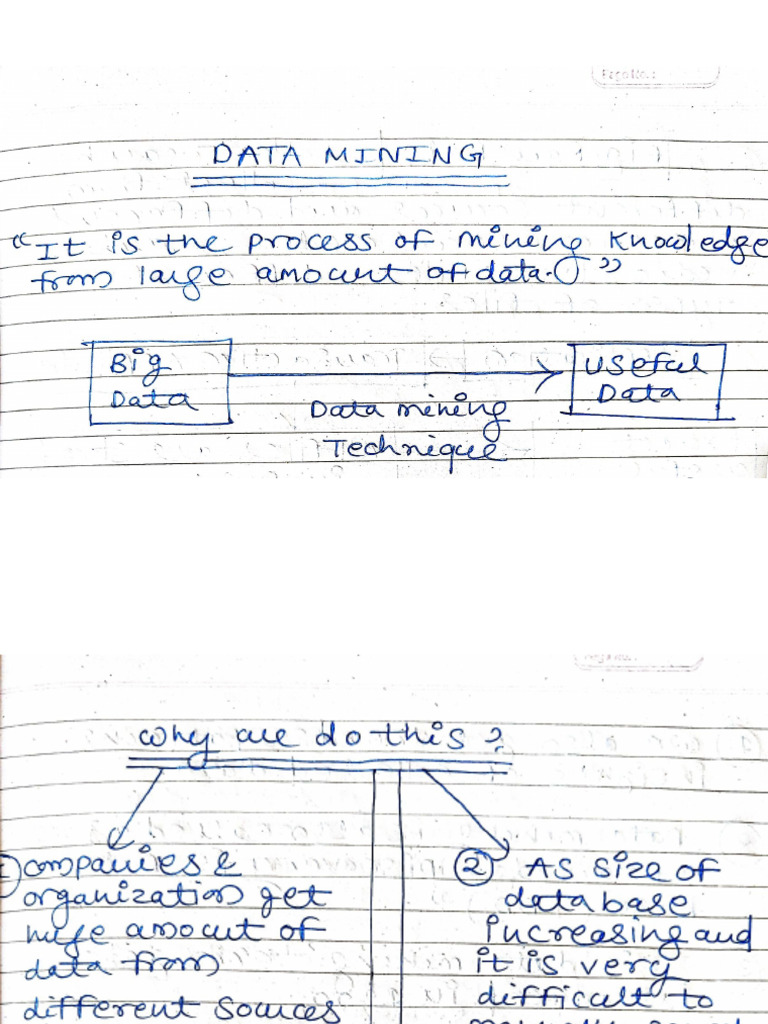 DATA MINING
"It is the process of mining knowledge
from large amount of data."
Big
Data
Useful
Data
Data mining
Technique
Why are do this?
① companies &
organization get
huge amount of
data from
different sources
② As size of
database
increasing and
it is very
difficult to